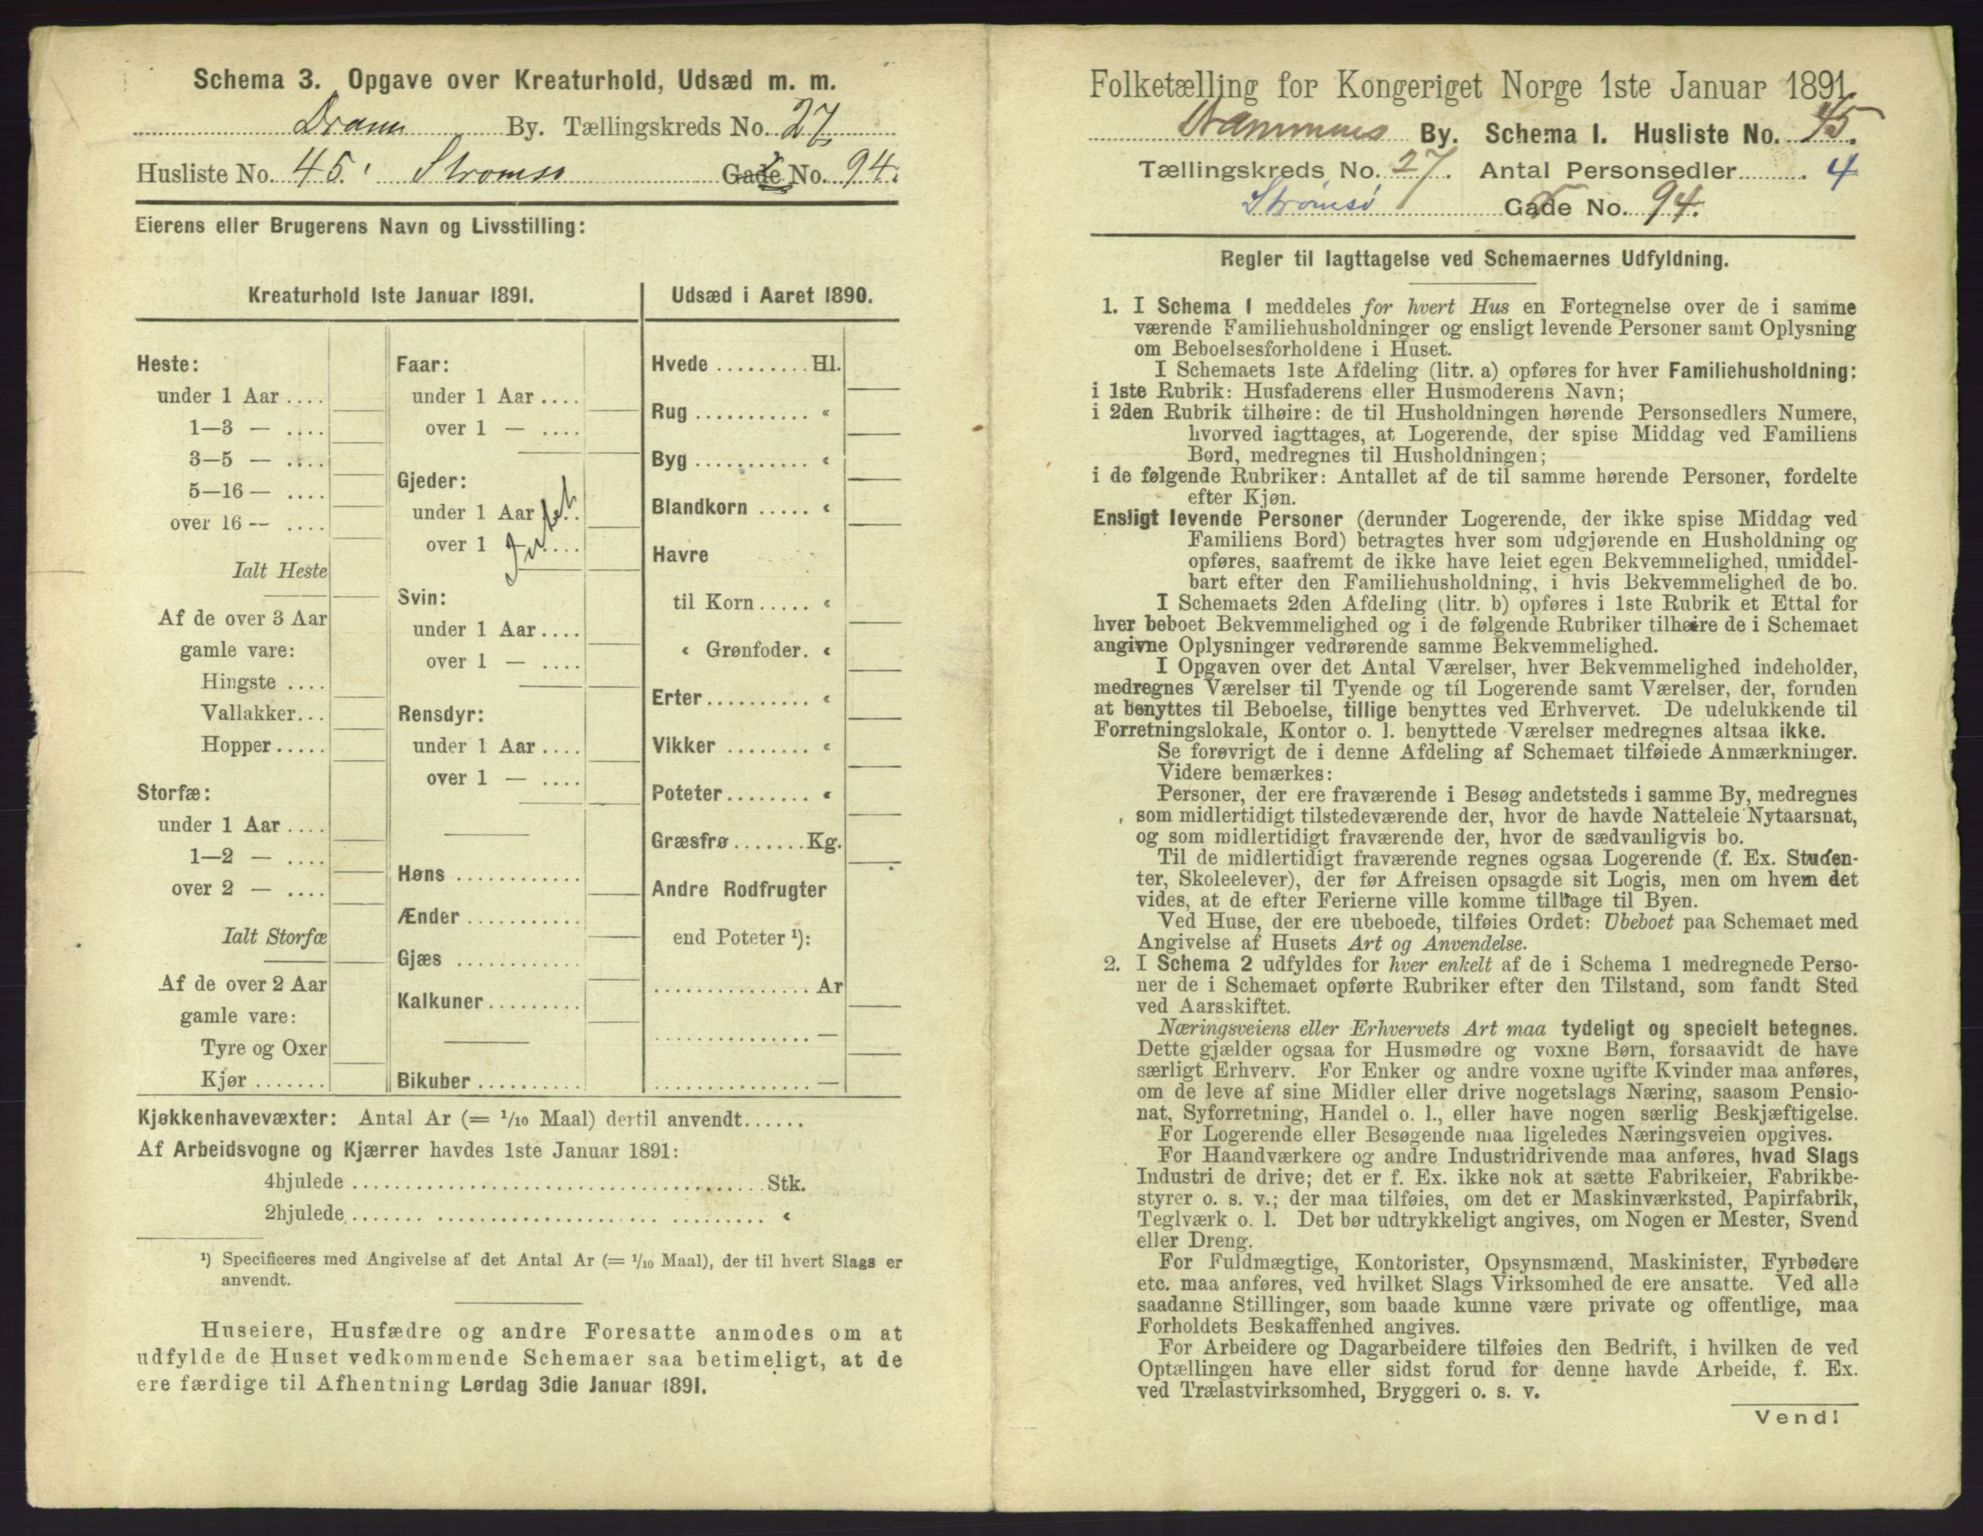 Schema 3. Opgave over Kreaturhold, Udsæd m. m.
Dramm By. Tællingskreds No. 27
Husliste No. 45. Stromsø Gade No. 94.
Eierens eller Brugerens Navn og Livsstilling:
Kreaturhold 1ste Januar 1891.
Heste:
under 1 Aar ....
1—3 — ....
3—5 — ....
5—16 — ....
over 16 — ....
Ialt Heste
Af de over 3 Aar
gamle vare:
Hingste ....
Vallakker...
Hopper.....
Storfæ:
under 1 Aar ....
1—2 — ....
over 2 — ....
Ialt Storfæ
Af de over 2 Aar
gamle vare:
Tyre og Oxer
Kjør.......
Faar:
under 1 Aar ....
over 1 — ....
Gjeder:
under 1 Aar ....
over 1 ....
Intet
Svin:
under 1 Aar ....
over 1 — ....
Rensdyr:
under 1 Aar ....
over 1 — ....
Høns ............
Ænder ...........
Gjæs ............
Kalkuner.........
Bikuber ..........
Udsæd i Aaret 1890.
Hvede ......... Hl.
Rug ........... «
Byg ........... «
Blandkorn ..... «
Havre
til Korn ..... «
« Grønfoder. «
Erter.......... «
Vikker ........ «
Poteter........ «
Græsfrø....... Kg.
Andre Rodfrugter
end Poteter ¹):
............... Ar
............... —
............... —
Kjøkkenhavevæxter: Antal Ar (= 1/10 Maal) dertil anvendt......
Af Arbeidsvogne og Kjærrer havdes 1ste Januar 1891:
4hjulede ........................................ Stk.
2hjulede ........................................ «
¹) Specificeres med Angivelse af det Antal Ar (= 1/10 Maal), der til hvert Slags er
anvendt.
Huseiere, Husfædre og andre Foresatte anmodes om at
udfylde de Huset vedkommende Schemaer saa betimeligt, at de
ere færdige til Afhentning Lørdag 3die Januar 1891.
Folketælling for Kongeriget Norge 1ste Januar 1891.
Drammens By. Schema 1. Husliste No. 45.
Tællingskreds No. 27. Antal Personsedler ........ 4
Strømsø Gade No. 94.
Regler til Iagttagelse ved Schemaernes Udfyldning.
1. I Schema 1 meddeles for hvert Hus en Fortegnelse over de i samme
værende Familiehusholdninger og ensligt levende Personer samt Oplysning
om Beboelsesforholdene i Huset.
I Schemaets 1ste Afdeling (litr. a) opføres for hver Familiehusholdning:
i 1ste Rubrik: Husfaderens eller Husmoderens Navn;
i 2den Rubrik tilhøire: de til Husholdningen hørende Personsedlers Numere,
hvorved iagttages, at Logerende, der spise Middag ved Familiens
Bord, medregnes til Husholdningen;
i de følgende Rubriker: Antallet af de til samme hørende Personer, fordelte
efter Kjøn.
Ensligt levende Personer (derunder Logerende, der ikke spise Middag ved
Familiens Bord) betragtes hver som udgjørende en Husholdning og
opføres, saafremt de ikke have leiet egen Bekvemmelighed, umiddel-
bart efter den Familiehusholdning, i hvis Bekvemmelighed de bo.
I Schemaets 2den Afdeling (litr. b) opføres i 1ste Rubrik et Ettal for
hver beboet Bekvemmelighed og i de følgende Rubriker tilhøire de i Schemaet
angivne Oplysninger vedrørende samme Bekvemmelighed.
I Opgaven over det Antal Værelser, hver Bekvemmelighed indeholder,
medregnes Værelser til Tyende og til Logerende samt Værelser, der, foruden
at benyttes til Beboelse, tillige benyttes ved Erhvervet. De udelukkende til
Forretningslokale, Kontor o. l. benyttede Værelser medregnes altsaa ikke.
Se forøvrigt de i denne Afdeling af Schemaet tilføiede Anmærkninger.
Videre bemærkes:
Personer, der ere fraværende i Besøg andetsteds i samme By, medregnes
som midlertidigt tilstedeværende der, hvor de havde Natteleie Nytaarsnat,
og som midlertidigt fraværende der, hvor de sædvanligvis bo.
Til de midlertidigt fraværende regnes ogsaa Logerende (f. Ex. Studen-
ter, Skoleelever), der før Afreisen opsagde sit Logis, men om hvem det
vides, at de efter Ferierne ville komme tilbage til Byen.
Ved Huse, der ere ubeboede, tilføies Ordet: Ubeboet paa Schemaet med
Angivelse af Husets Art og Anvendelse.
2. I Schema 2 udfyldes for hver enkelt af de i Schema 1 medregnede Perso-
ner de i Schemaet opførte Rubriker efter den Tilstand, som fandt Sted
ved Aarsskiftet.
Næringsveiens eller Erhvervets Art maa tydeligt og specielt betegnes.
Dette gjælder ogsaa for Husmødre og voxne Børn, forsaavidt de have
særligt Erhverv. For Enker og andre voxne ugifte Kvinder maa anføres,
om de leve af sine Midler eller drive nogetslags Næring, saasom Pensio-
nat, Syforretning, Handel o. l., eller have nogen særlig Beskjæftigelse.
For Logerende eller Besøgende maa ligeledes Næringsveien opgives.
For Haandværkere og andre Industridrivende maa anføres, hvad Slags
Industri de drive; det er f. Ex. ikke nok at sætte Fabrikeier, Fabrikbe-
styrer o. s. v.; der maa tilføies, om det er Maskinværksted, Papirfabrik,
Teglværk o. l. Det bør udtrykkeligt angives, om Nogen er Mester, Svend
eller Dreng.
For Fuldmægtige, Kontorister, Opsynsmænd, Maskinister, Fyrbødere
etc. maa anføres, ved hvilket Slags Virksomhed de ere ansatte. Ved alle
saadanne Stillinger, som baade kunne være private og offentlige, maa
Forholdets Beskaffenhed angives.
For Arbeidere og Dagarbeidere tilføies den Bedrift, i hvilken de ved
Optællingen have eller sidst forud for denne havde Arbeide, f. Ex.
ved Trælastvirksomhed, Bryggeri o. s. v.
Vend!